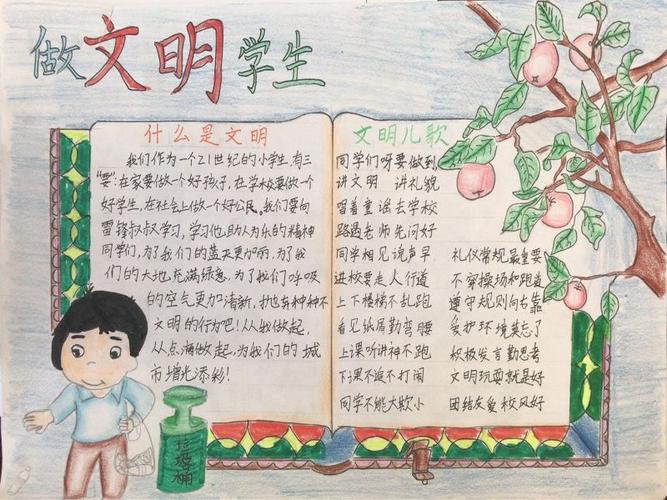 做文明学生
什么是文明
我们作为一个21世纪的小学生,有三
“要”:在家要做一个好孩子,在学校要做一个
好学生,在社会上做一个好公民。我们要向
雷锋叔叔学习,学习他助人为乐的精神
同学们,为了我们的蓝天更加丽,为了我
们的大地充满绿意,为了我们呼吸
的空气更加清新,抛弃种种不
文明的行为吧!从我做起,
从点滴做起,为我们的城
市增光添彩!
文明儿歌
同学们呀要做到
讲文明 讲礼貌
唱着童谣去学校
路遇老师先问好
同学相见说声早
进校要走人行道
上下楼梯不乱跑
看见纸屑勤弯腰
上课听讲神不跑
下课不追不打闹
同学不能大欺小
礼仪常规最重要
不穿操场和跑道
遵守规则向右靠
爱护环境莫忘了
积极发言勤思考
文明玩耍就是好
团结友爱校风好
垃圾桶